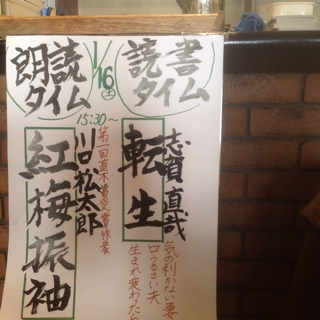 読書
タイム
志賀直哉
転生
気の利かない妻
口うるさい夫
生まれ変わった
1/16(土)
朗読
タイム
15:30〜
第一回直木賞受賞作家
川口松太郎
紅梅振袖